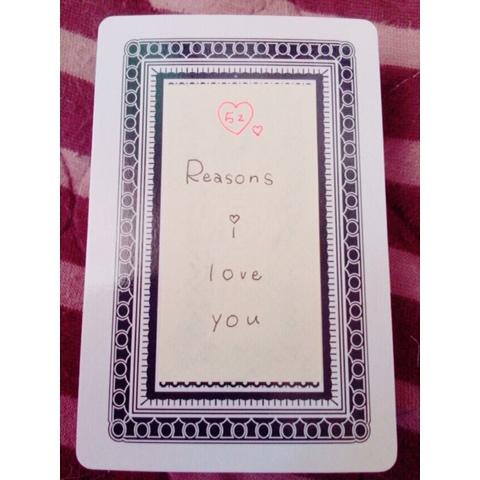 52
Reasons
i
love
you